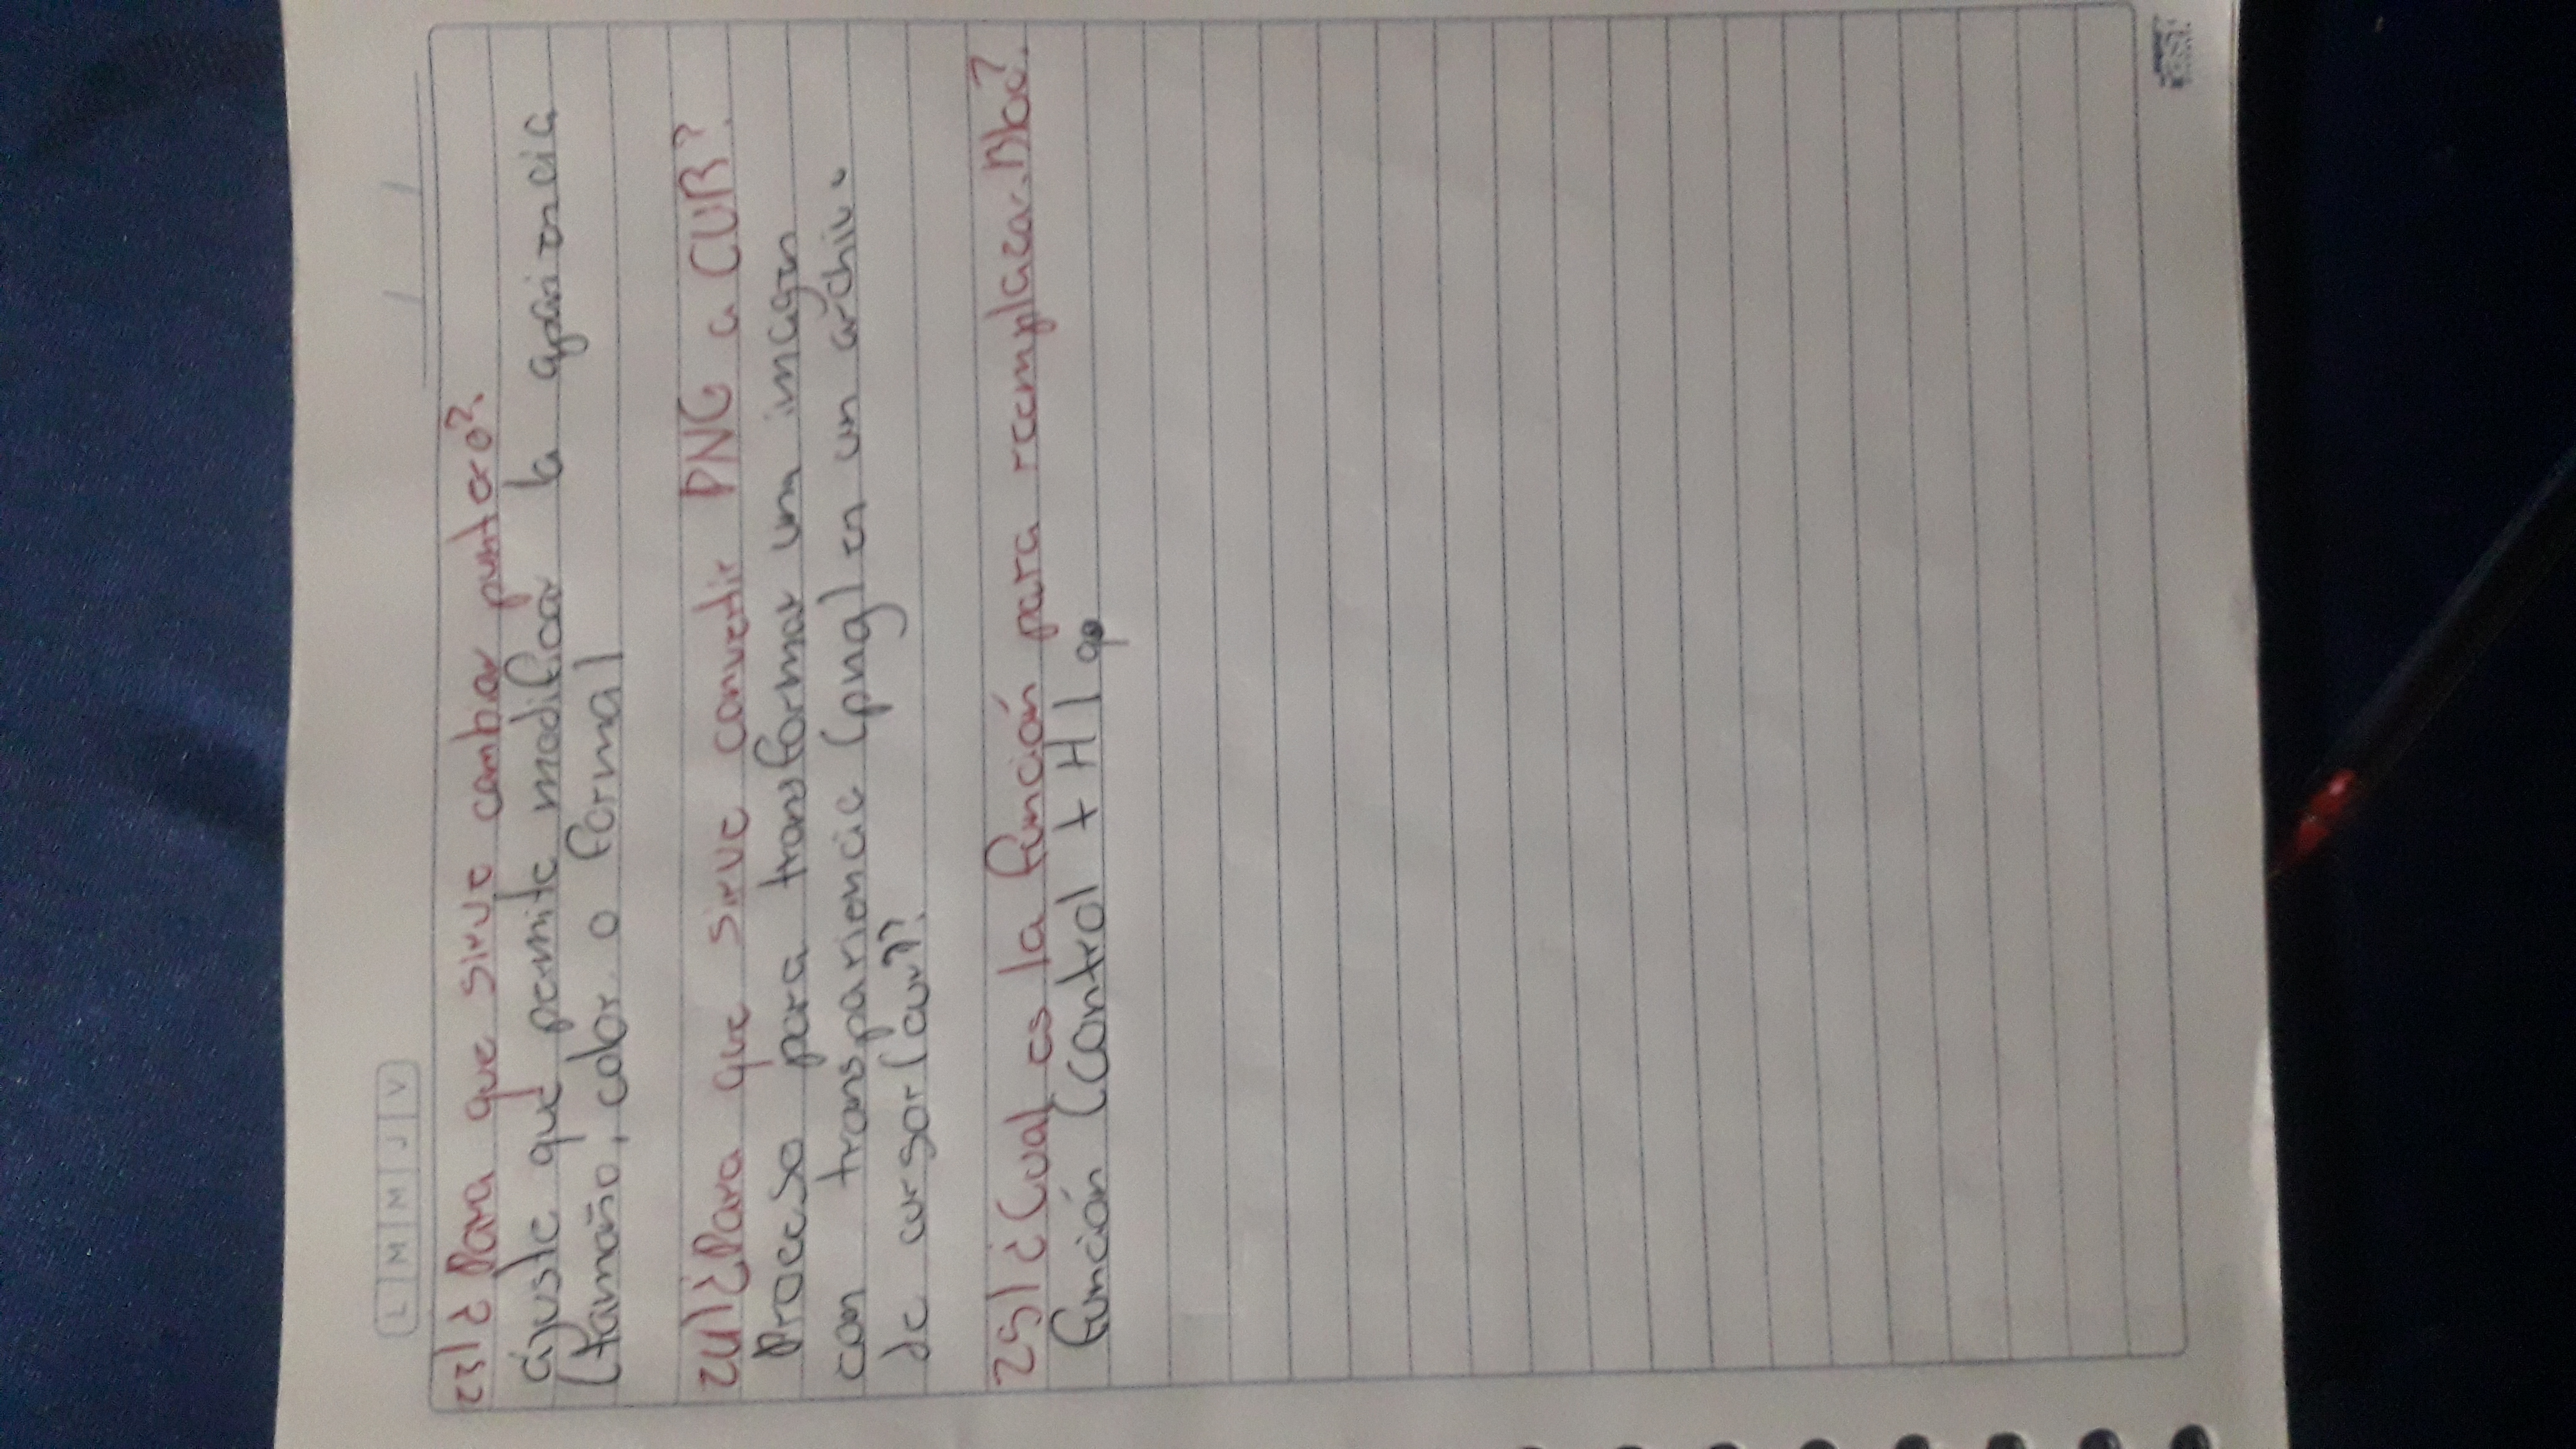 L M M J V
23) ¿Para que sirve cambiar puntero?
ajuste que permite modificar la apariencia
(tamaño, color o forma)
24) ¿Para que sirve convertir PNG a CUR?
Proceso para transformar un imagen
con transpariencia (png) en un archivo
de cursor (cur)?
25) ¿Cual es la función para reemplazar Bloc?
función (Control + H)